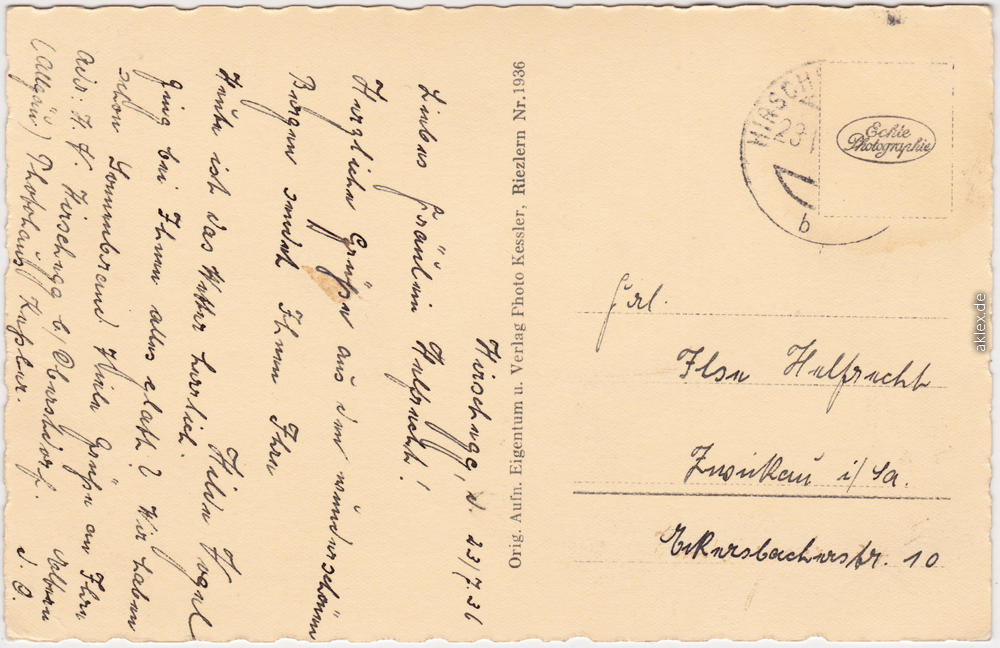 Hirschegg, d. 23/7.36
Liebes Fräulein Helfrecht!
Herzliche Grüße aus den wunderschönen
Bergen sendet Ihnen Ihre
Hilde Vogel
Heute ist das Wetter herrlich.
Ging bei Ihnen alles glatt? Wir haben
schon Sonnenbrand. Viele Grüße an Ihre
Eltern
d. O.
Adr: z. Z. Hirschegg b/ Oberstdorf.
(Allgäu) Photohaus Keßler.
Orig. Aufn. Eigentum u. Verlag Photo Kessler, Riezlern Nr. 1936
HIRSCH
23
b
Echte
Photographie
Frl.
Ilse Helfrecht
Zwickau i/Sa.
Eckersbacherstr. 10
aklex.de